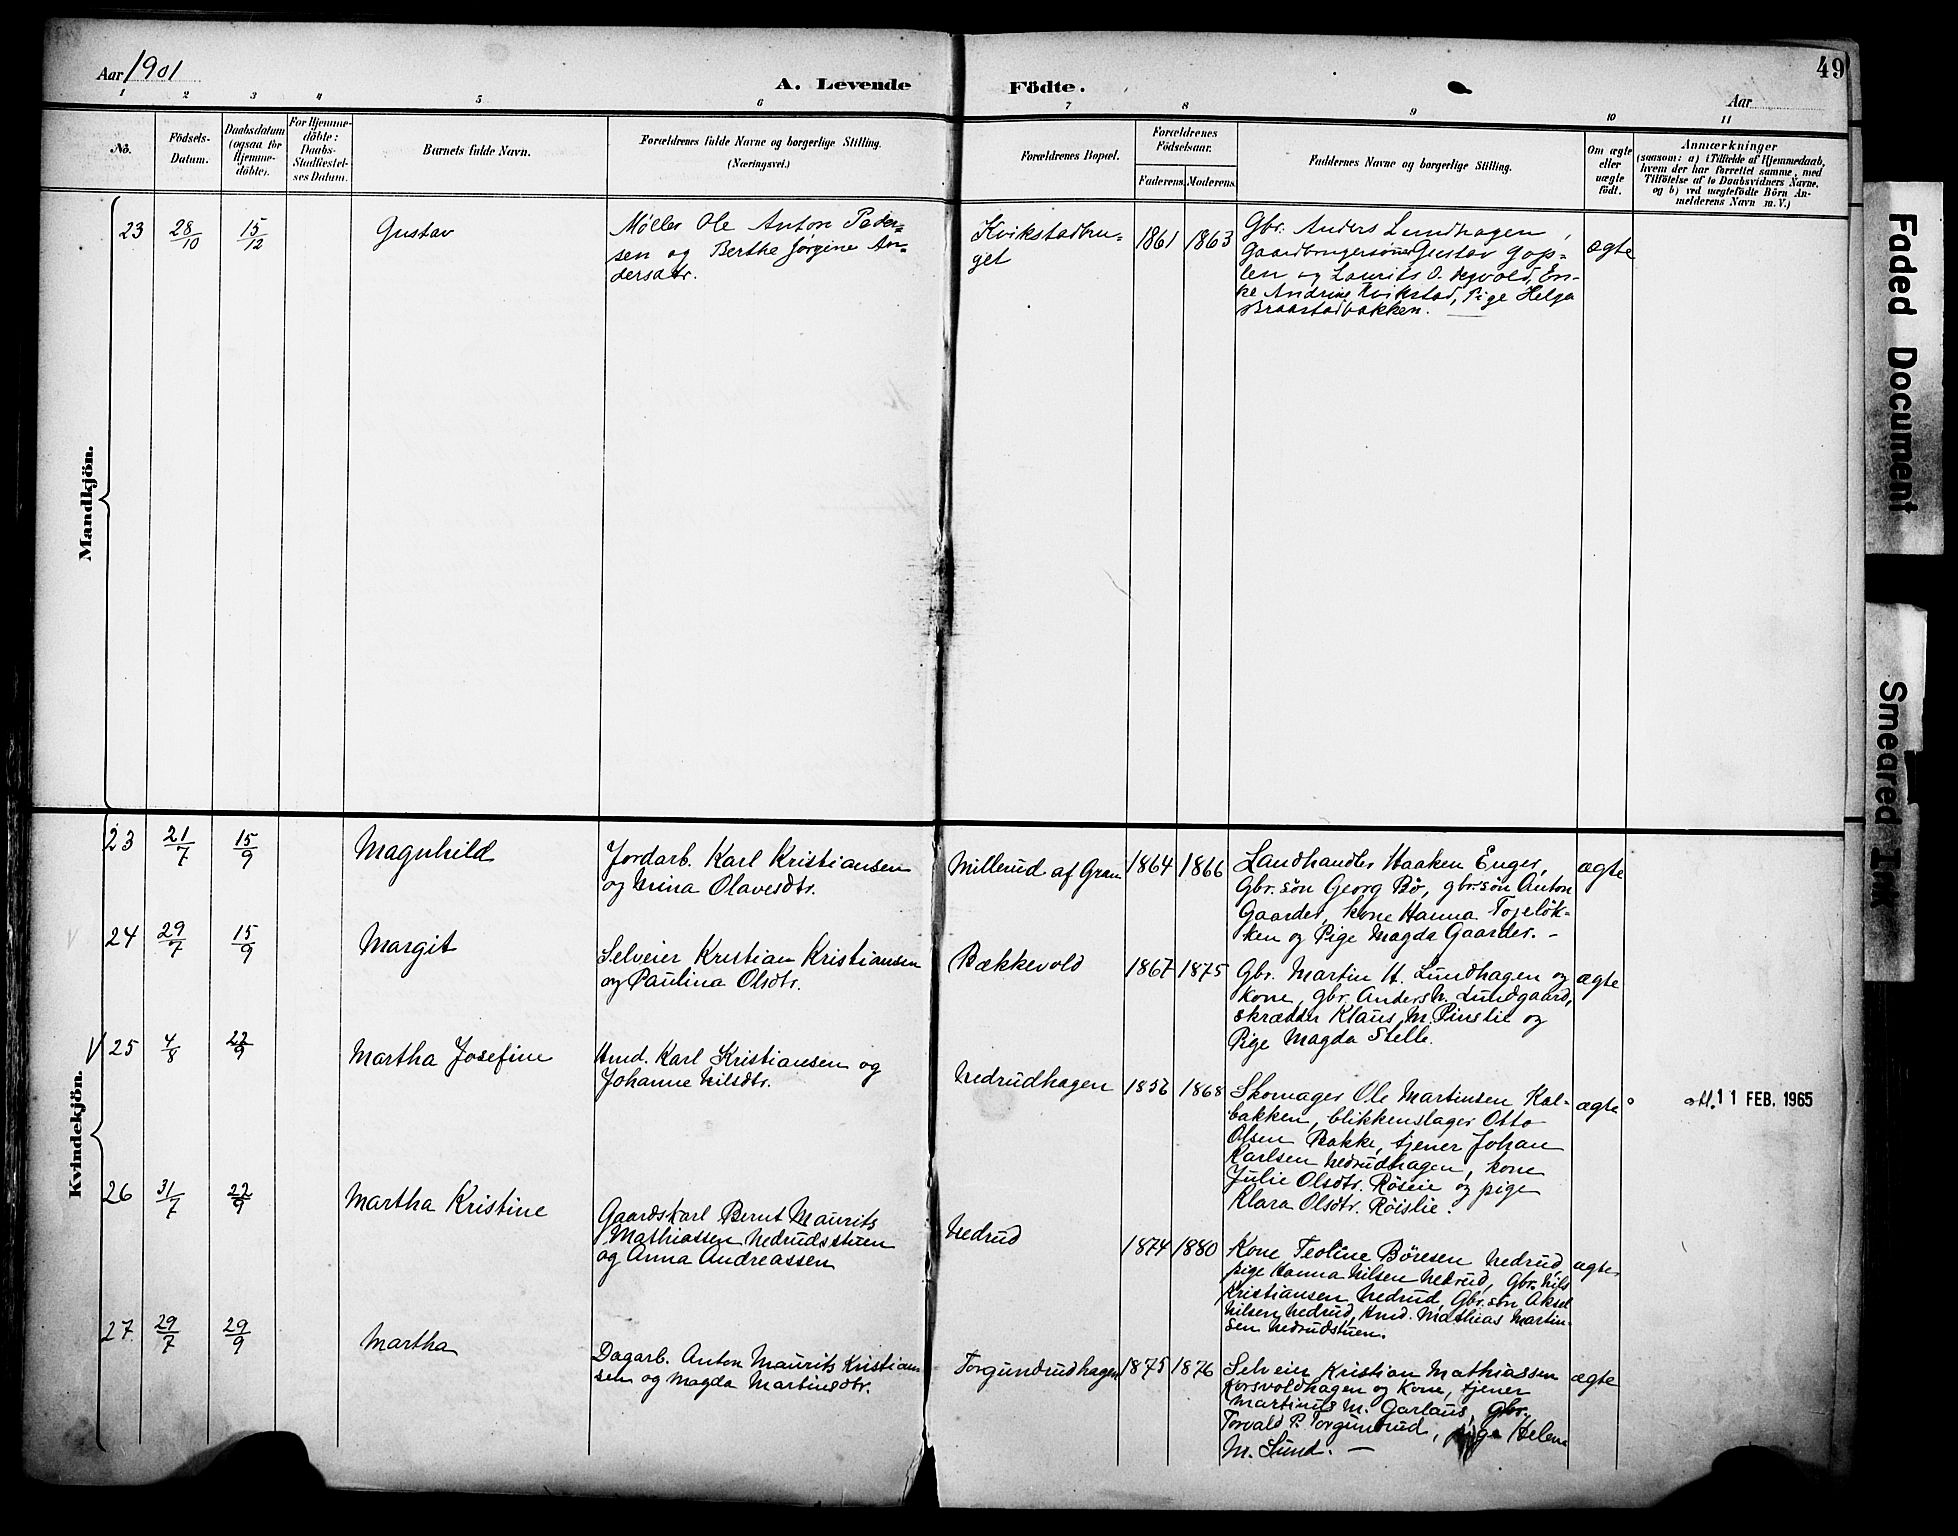 Aar 1901
A. Levende Födte.
49
Aar
1 2 3 4 5 6 7 8 9 10 11
No.
Födsels-
Datum.
Daabsdatum
(ogsaa for
Hjemme-
döbte).
For Hjemme-
döbte:
Daabs-
Stadfæstel-
ses Datum.
Barnets fulde Navn.
Forældrenes fulde Navne og borgerlige Stilling.
(Næringsvei.)
Forældrenes Bopæl.
Forældrenes
Födselsaar.
Faderens. Moderens.
Faddernes Navne og borgerlige Stilling.
Om ægte
eller
uægte
födt.
Anmærkninger
(saasom: a) i Tilfælde af Hjemmedaab,
hvem der har forrettet samme, med
Tilföielse af to Daabsvidners Navne.
og b) ved uægtefödte Börn An-
melderens Navn m. V.)
Mandkjön.
23 28/10 15/12 Gustav
Møller Ole Anton Peder-
sen og Berthe Jørgine An-
dersdtr.
Kvikstadbru-
get
1861 1863
Gbr. Anders Lundhagen,
Gaardbrugersønner Gustav Gop-
len og Laurits O. Egvold, En-
ke Andrine Kvikstad, Pige Helga
Braastadbakken.
ægte
Kvindekjön.
23 21/7 15/9 Magnhild
Jordarb. Karl Kristiansen
og Nina Olavesdtr.
Millerud af Gran
1864 1866
Landhandler Haaken Enger,
Gbr. søn Georg Bø, gbr. søn Anton
Gaarder, kone Hanna Tojeløk-
ken og Pige Magda Gaarder. -
ægte
24 29/7 15/9 Margit
Selveier Kristian Kristiansen
og Paulina Olsdtr.
Bækkevold
1867 1875
Gbr. Martin H. Lundhagen og
kone, gbr. Anders N. Lundgaard,
skrædder Klaus M. Pinslie og
Pige Magda Stelle.
ægte
V 25 4/8 22/9 Martha Josefine
Hmd. Karl Kristiansen og
Johanne Nilsdtr.
Nedrudhagen
1857 1868
Skomager Ole Martinsen Kal-
bakken, blikkenslager Otto
Olsen Bakke, tjener Johan
Karlsen Nedrudhagen, kone
Julie Olsdtr. Røseie og pige
Klara Olsdtr. Røislie.
ægte
att. 11 FEB. 1965
26 31/7 22/9 Martha Kristine
Gaardskarl Bernt Maurits
Mathiassen Nedrudsstuen
og Anna Andreassen
Nedrud
1874 1880
Kone Teoline Børesen Nedrud,
pige Hanna Nilsen Nedrud, Gbr. Nils
Kristiansen Nedrud, Gbr. søn Aksel
Nilsen Nedrud, Hmd. Mathias Martin-
sen Nedrudstuen.
ægte
27 29/7 29/9 Martha
Dagarb. Anton Maurits Kristian-
sen og Magda Martinsdtr.
Torgundrudhagen
1875 1876
Selveier Kristian Mathiassen
Korsvoldhagen og Kone, tjener
Martinus M. Garlaus, Gbr.
Torvald P. Torgundrud, pige Helene
M. Sund. -
ægte
Faded Document
Smeared Ink